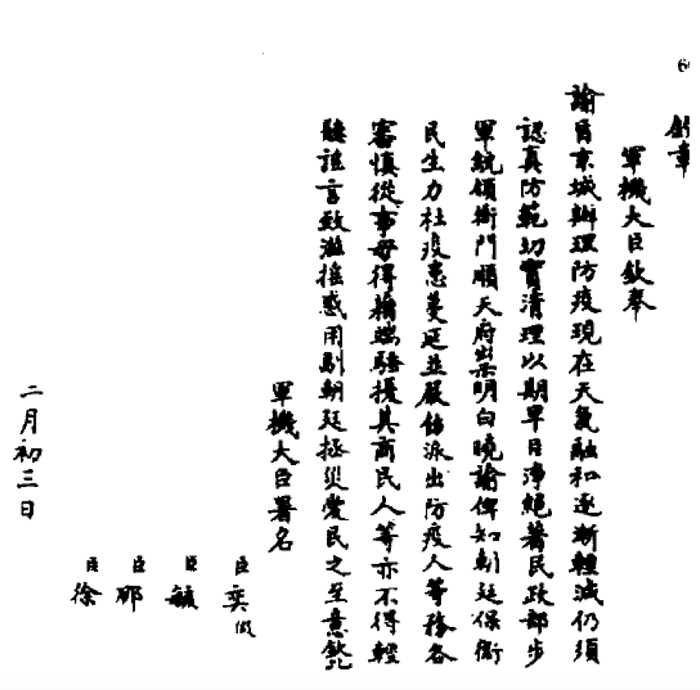 鈐章
軍機大臣欽奉
諭旨京城辦理防疫現在天氣融和逐漸輕減仍須
認真防範切實清理以期早日淨絕著民政部步
軍統領衙門順天府出示明白曉諭俾知朝廷保衛
民生力杜疫患蔓延並嚴飭派出防疫人等務各
審慎從事毋得藉端騷擾其商民人等亦不得輕
聽謠言致滋搖惑用副朝廷拯災愛民之至意欽此
軍機大臣署名
臣奕 假
臣毓
臣那
臣徐
二月初三日